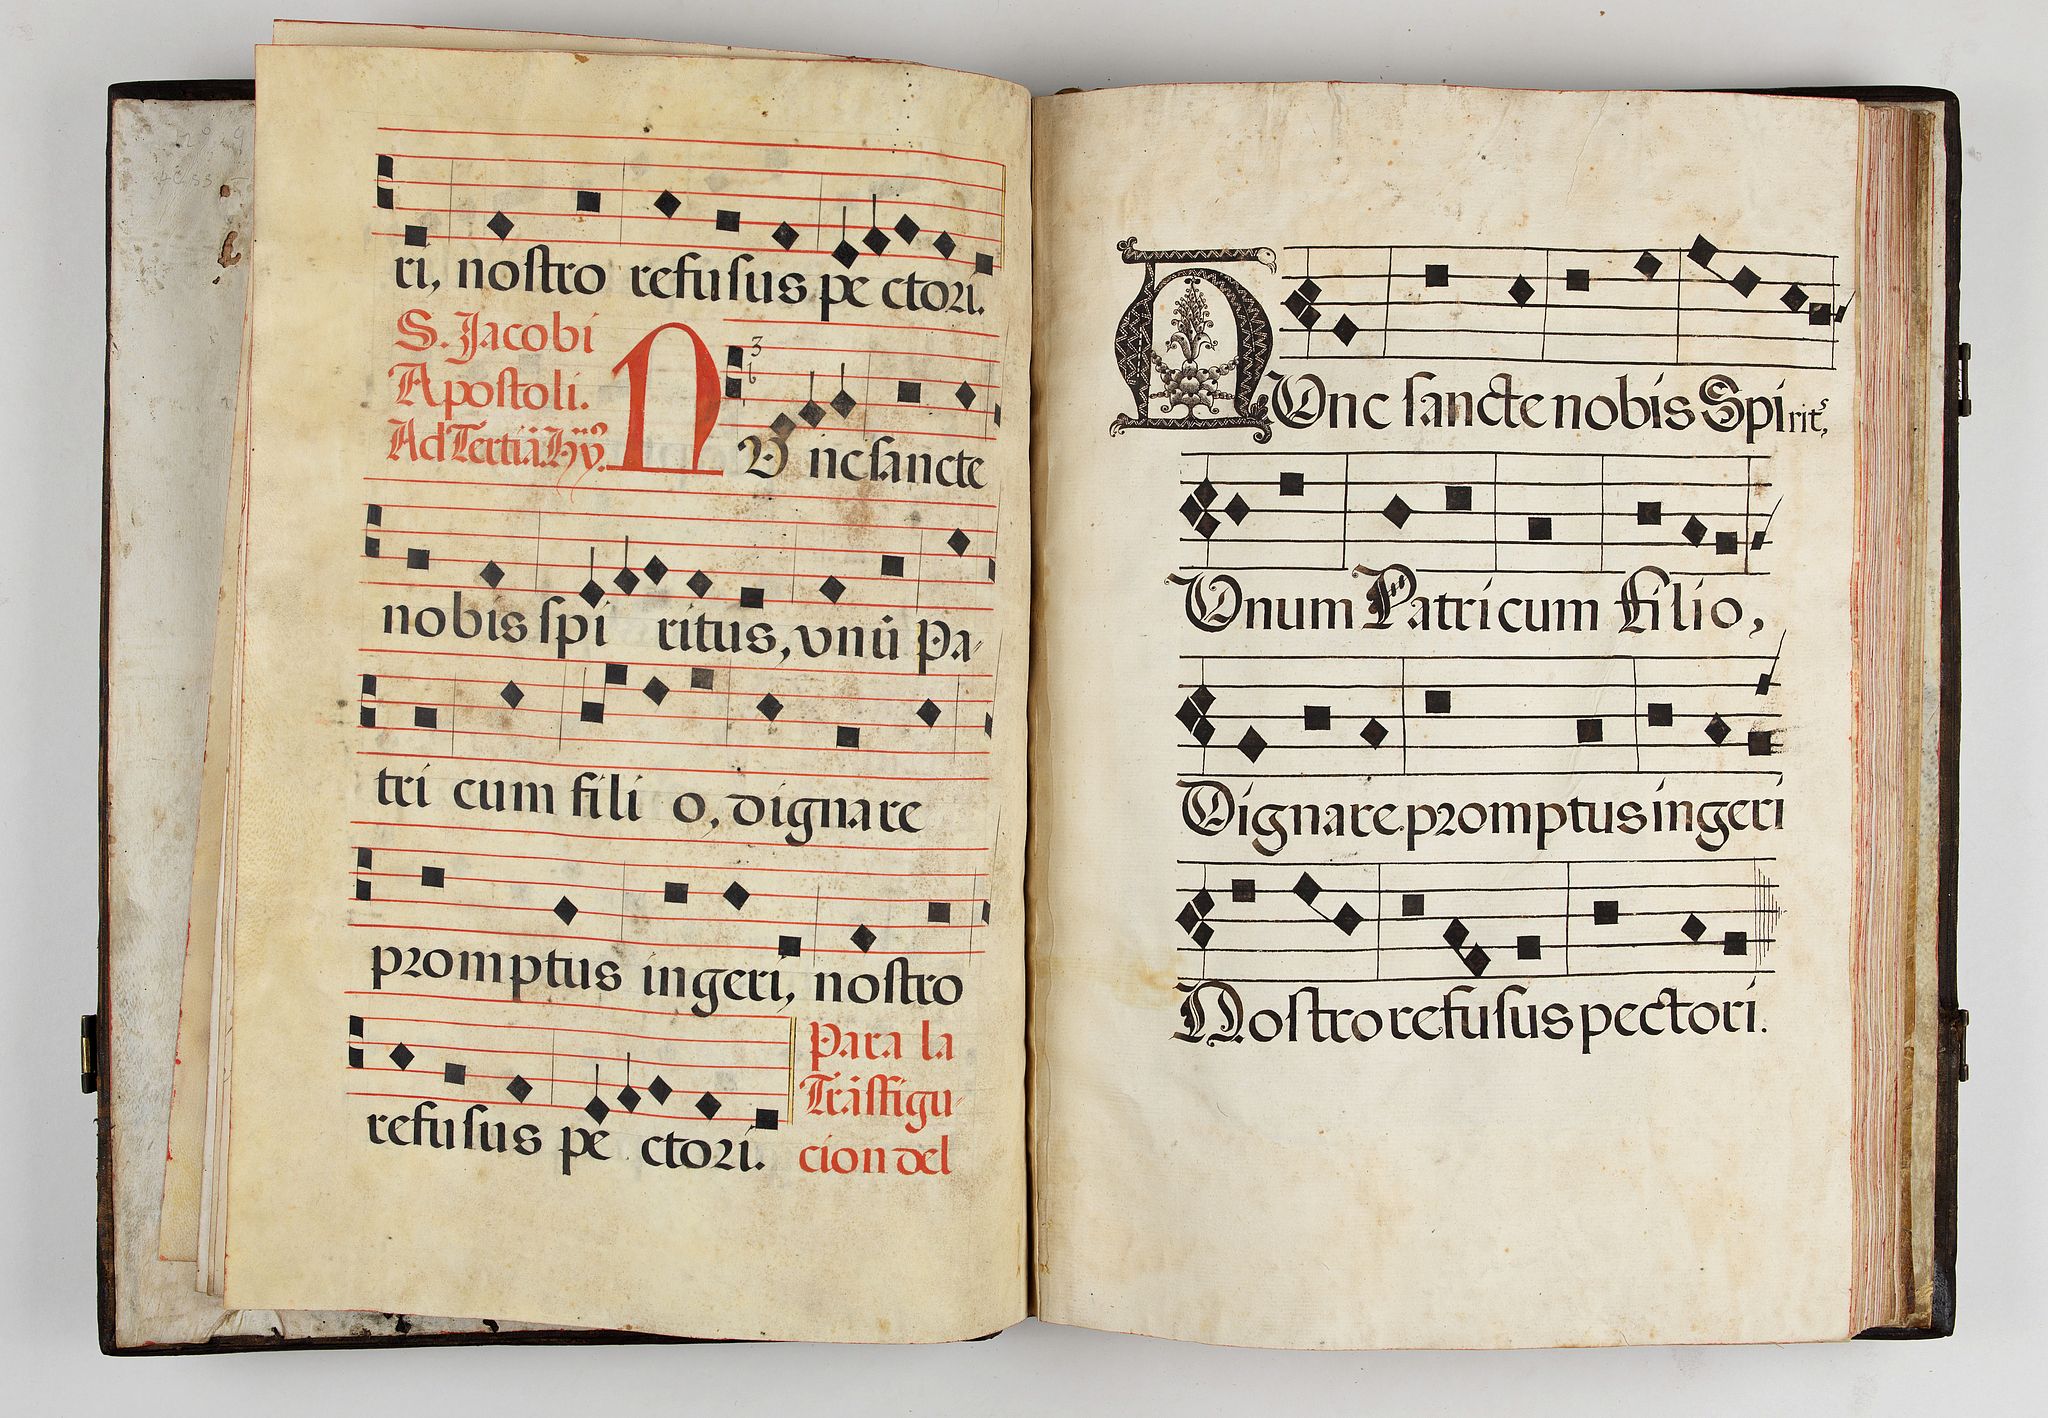 ri, nostro refusus pe ctori.
S. Jacobi
Apostoli.
Ad Tertiā. Hỹ.
NV nc sancte
nobis spi ritus, vnū Pa-
tri cum fili o, dignare
promptus ingeri, nostro
refusus pe ctori.
Para la
Trāsfigu-
cion del
NVnc sancte nobis Spirits,
Vnum Patri cum Filio,
Dignare promptus ingeri
Nostro refusus pectori.